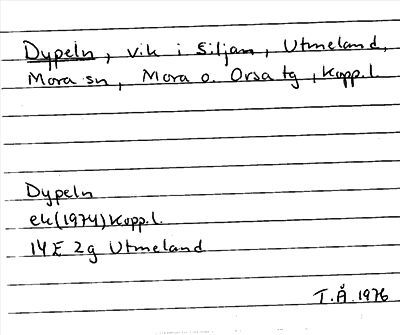 Dypeln, vik i Siljan, Utmeland,
Mora sn, Mora o. Orsa tg, Kopp.l.
Dypeln
ek(1974)Kopp.l.
14E 2g Utmeland
T.Å.1976